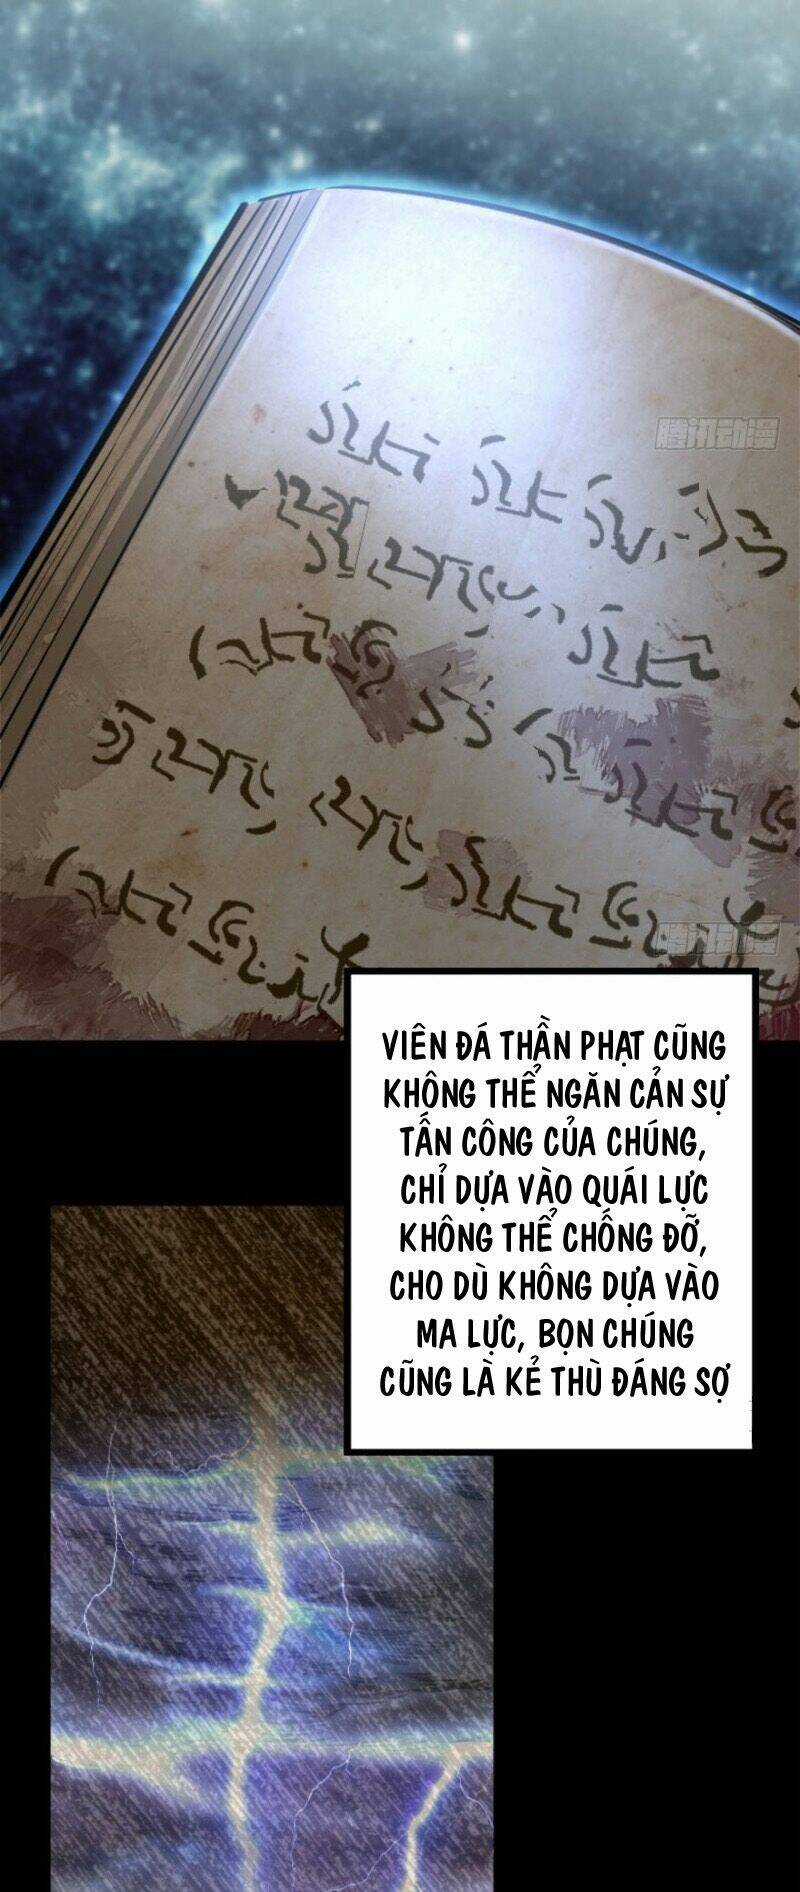 腾讯动漫
腾讯动漫
VIÊN ĐÁ THẦN PHẠT CŨNG
KHÔNG THỂ NGĂN CẢN SỰ
TẤN CÔNG CỦA CHÚNG,
CHỈ DỰA VÀO QUÁI LỰC
KHÔNG THỂ CHỐNG ĐỠ,
CHO DÙ KHÔNG DỰA VÀO
MA LỰC, BỌN CHÚNG
CŨNG LÀ KẺ THÙ ĐÁNG SỢ